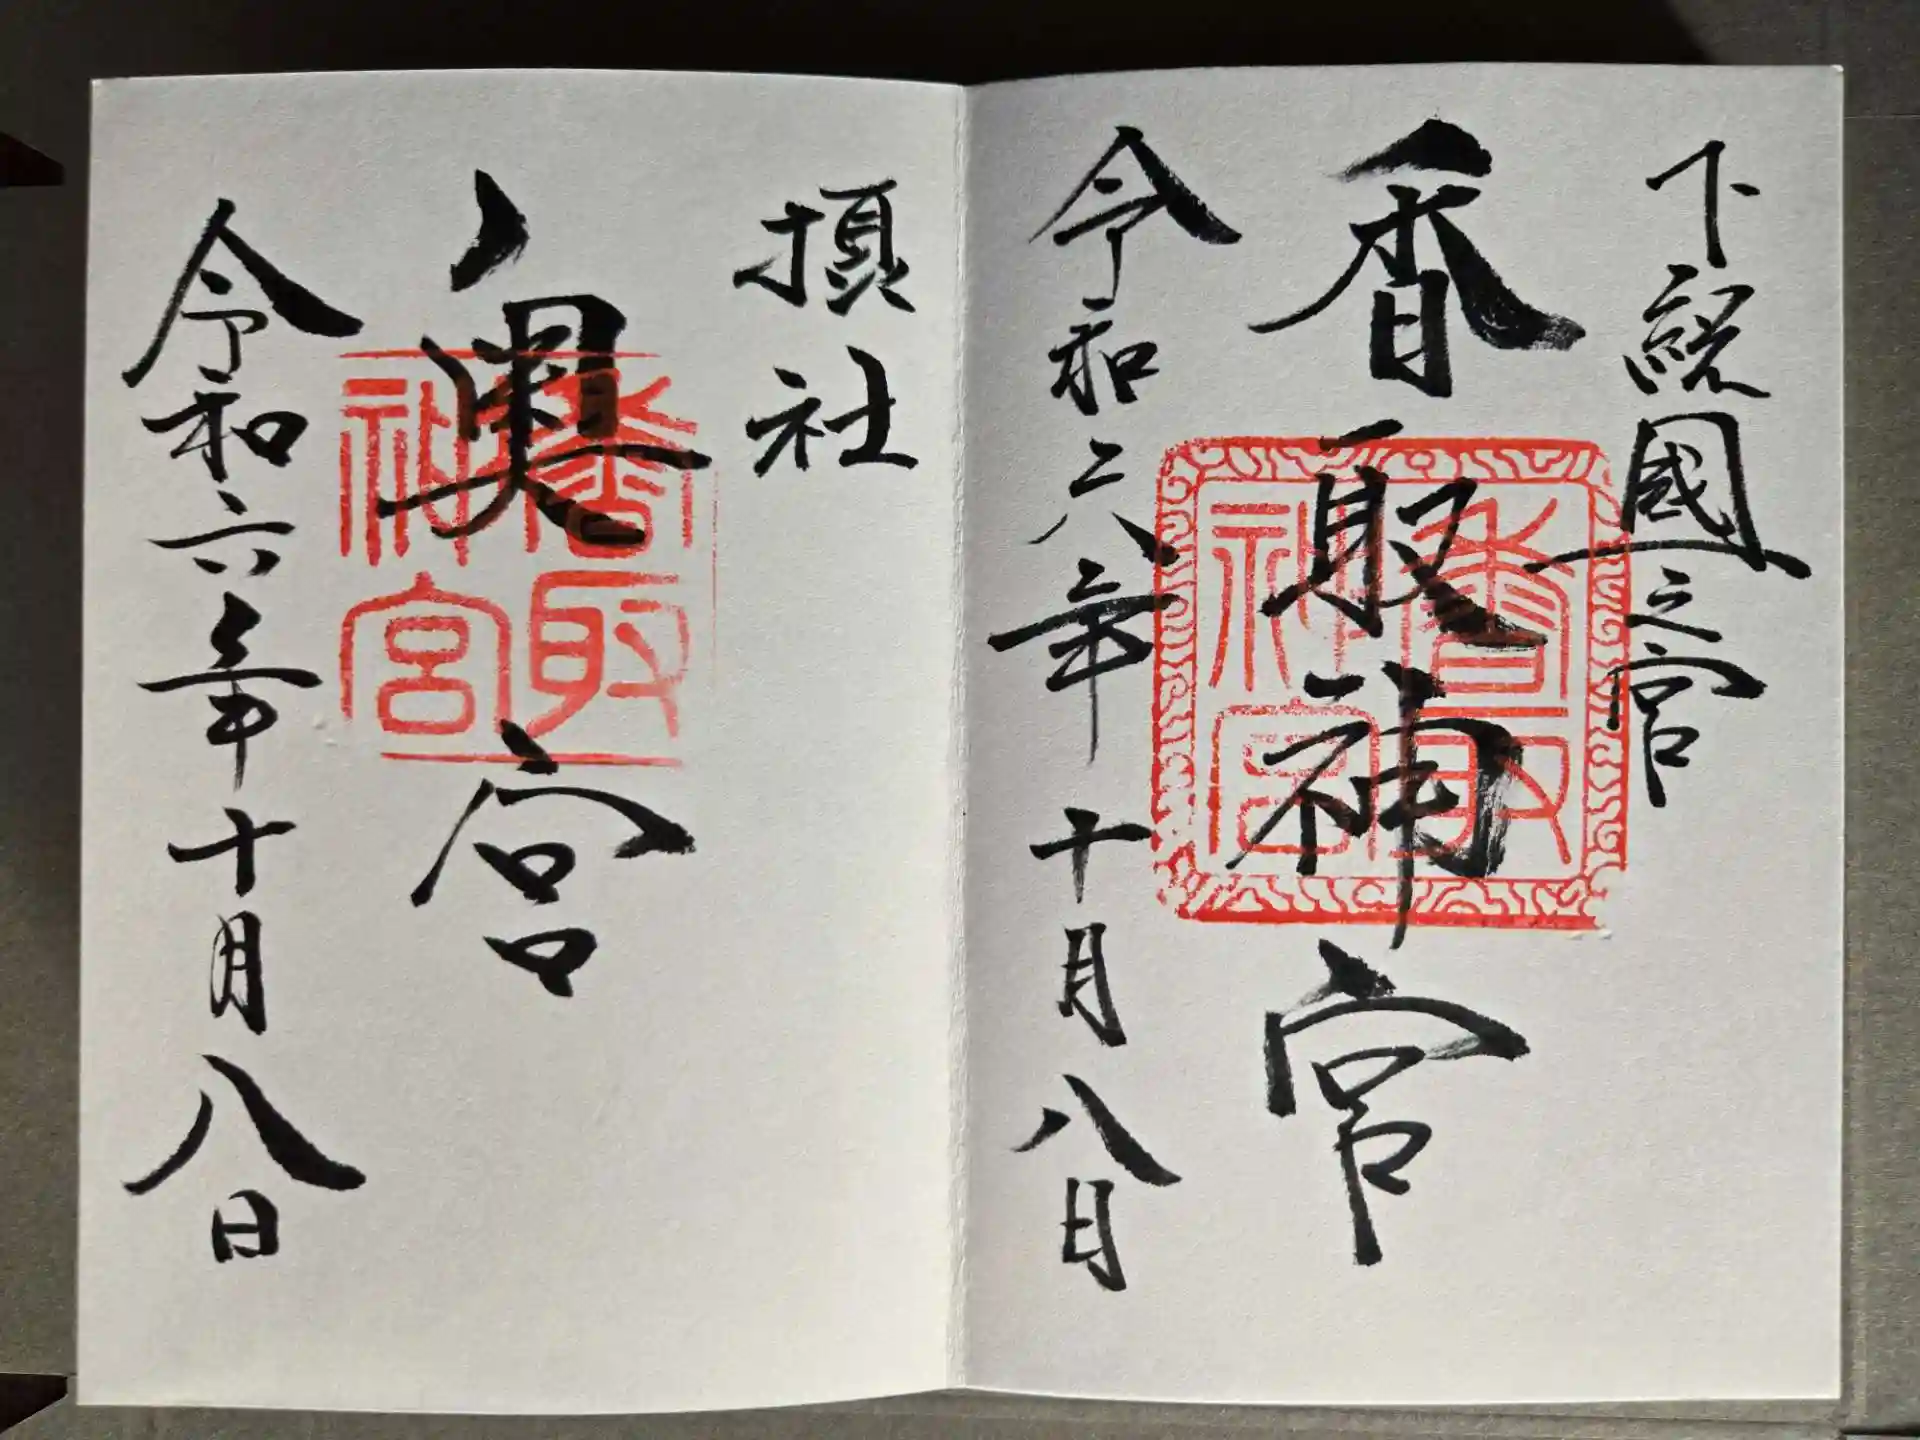 下総國一之宮
香取神宮
香取
神宮
令和六年十月八日
摂社
奥宮
香取
神宮
令和六年十月八日